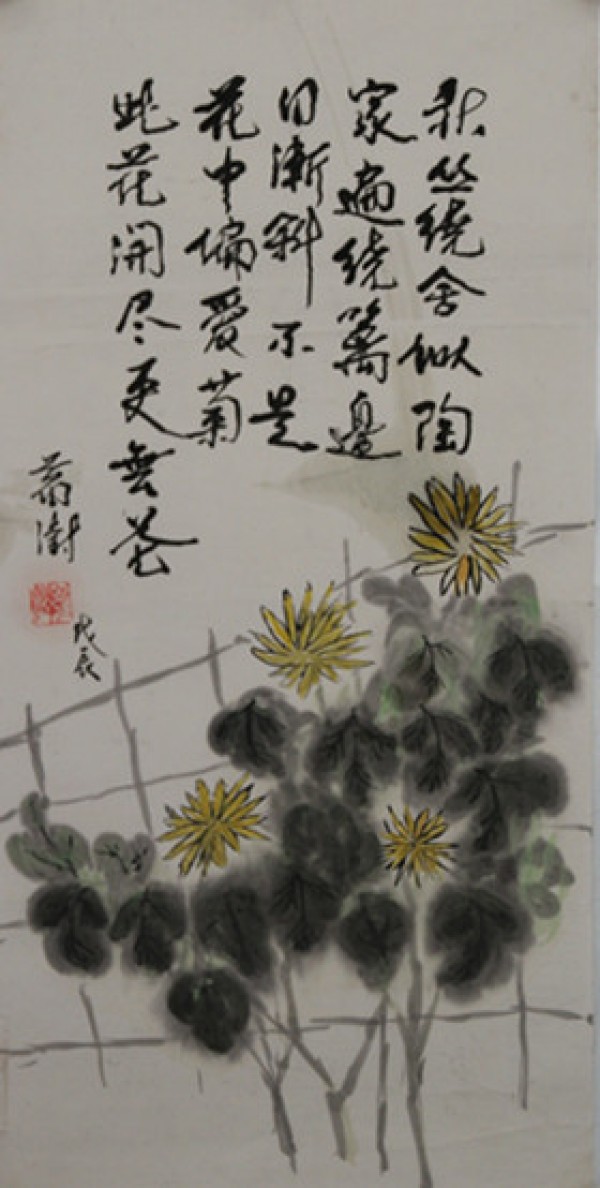 秋丛绕舍似陶
家遍绕篱邊
日漸斜不是
花中偏爱菊
此花開尽更無花
戊辰